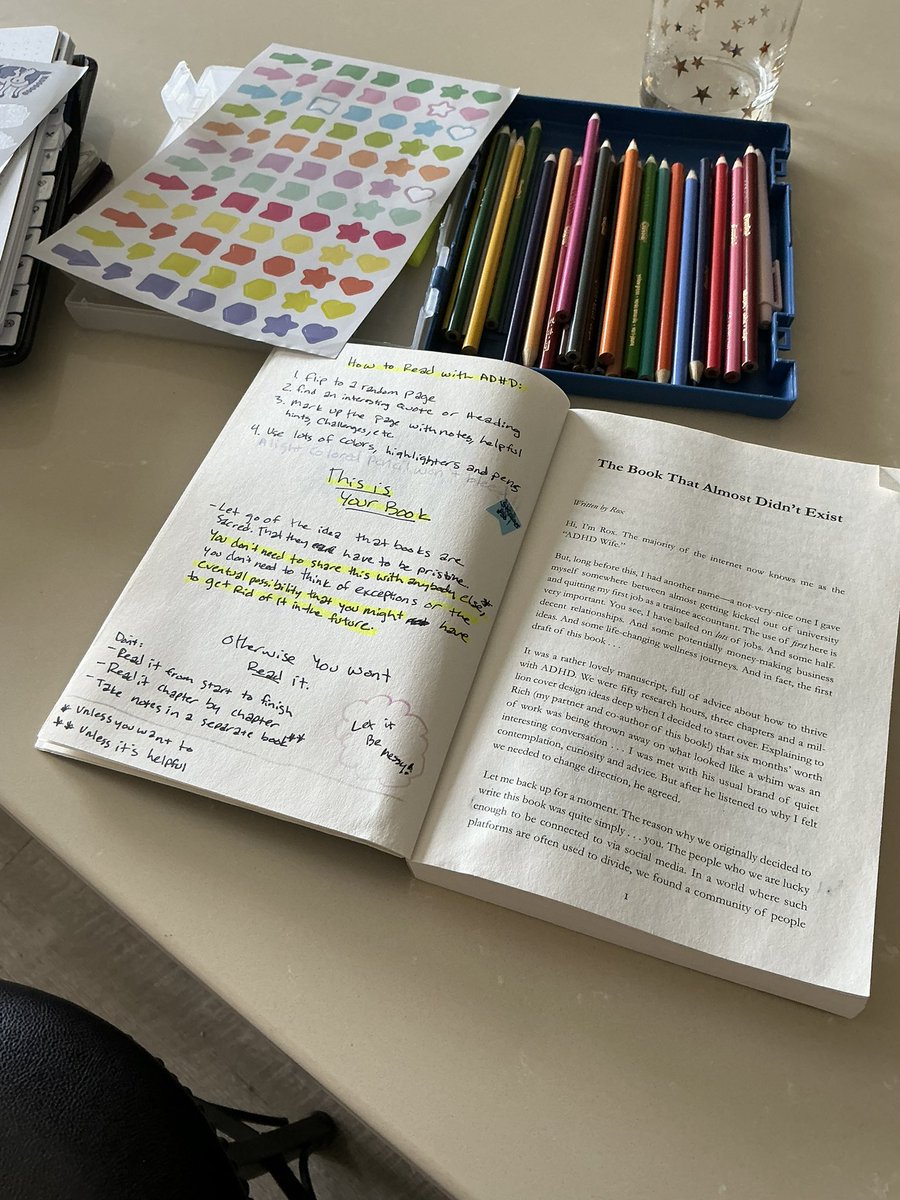 How to Read with ADHD:
1. flip to a random page
2. find an interesting Quote or Heading
3. mark up the page with notes, helpful
hints, challenges, etc
4. Use lots of colors, highlighters and pens
A light colored pencil won't
This is
Your Book
- Let go of the idea that books are
sacred. That they have to be pristine.
You don't need to share this with anybody else**
You don't need to think of exceptions or the
eventual possibility that you might have
to get rid of it in the future.
Otherwise You wont
Read it.
Dont:
- Read it from start to finish
- Read it chapter by chapter
- Take notes in a separate book**
* Unless you want to
** unless it's helpful
Let it
Be
messy!
The Book That Almost Didn't Exist
Written by Rox
Hi, I'm Rox. The majority of the internet now knows me as the
"ADHD Wife."
But, long before this, I had another name—a not-very-nice one I gave
myself somewhere between almost getting kicked out of university
and quitting my first job as a trainee accountant. The use of first here is
very important. You see, I have bailed on lots of jobs. And some half-
decent relationships. And some potentially money-making business
ideas. And some life-changing wellness journeys. And in fact, the first
draft of this book . . .
It was a rather lovely manuscript, full of advice about how to thrive
with ADHD. We were fifty research hours, three chapters and a mil-
lion cover design ideas deep when I decided to start over. Explaining to
Rich (my partner and co-author of this book!) that six months' worth
of work was being thrown away on what looked like a whim was an
interesting conversation . . . I was met with his usual brand of quiet
contemplation, curiosity and advice. But after he listened to why I felt
we needed to change direction, he agreed.
Let me back up for a moment. The reason why we originally decided to
write this book was quite simply . . . you. The people who we are lucky
enough to be connected to via social media. In a world where such
platforms are often used to divide, we found a community of people
1